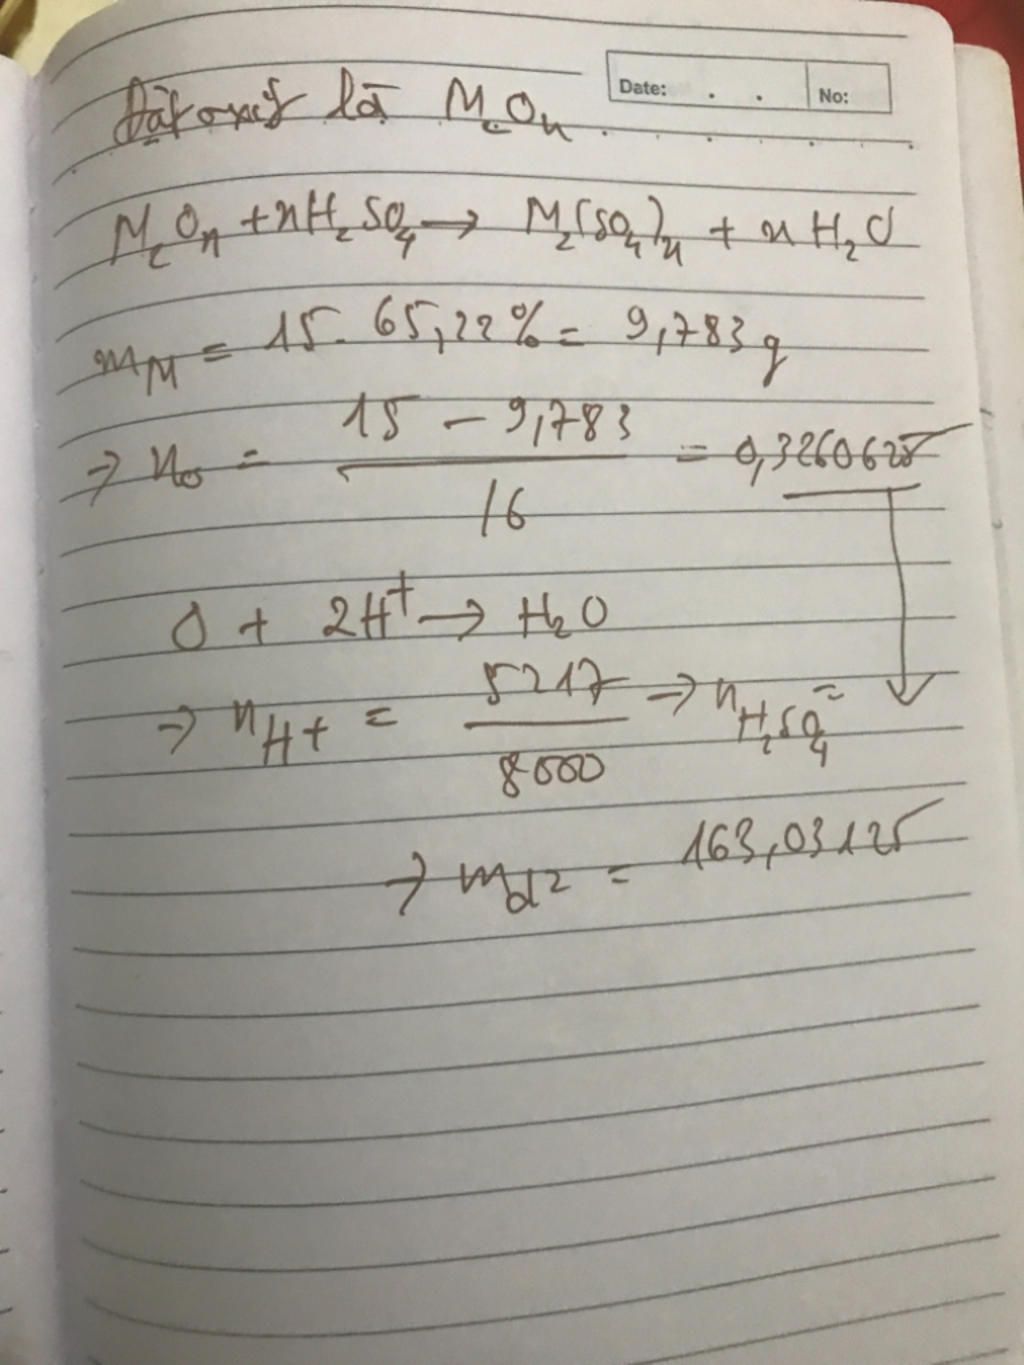 Date: . . No:
Đặt oxit là M₂Oₙ
M₂Oₙ + nH₂SO₄ → M₂(SO₄)ₙ + nH₂O
mM = 15. 65,22% = 9,783g
→ nO = (15 - 9,783)/16 = 0,3260625
O + 2H⁺ → H₂O
→ nH+ = 5217/8000 → nH₂SO₄ =
→ mdd = 163,03125